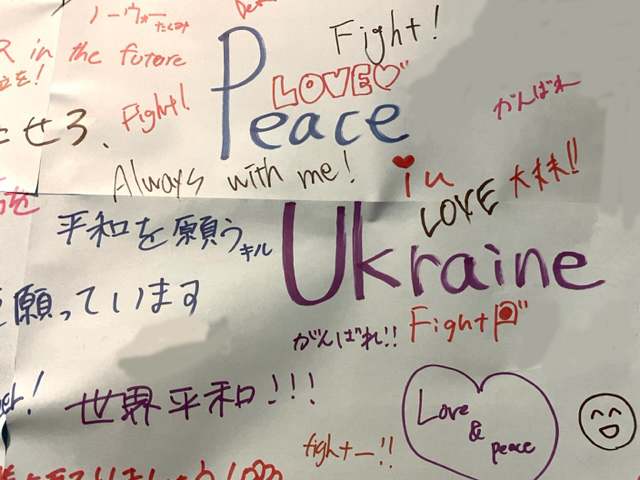 ノーウォー
たくみ
Fight!
R in the future
LOVE
Peace
を!
Fight!
がんばれ
せろ、
Always with me!
in
LOVE
大丈夫!!
を
平和を願う
キル
Ukraine
願っています
がんばれ!!
Fight
世界平和!!!
Love
&
peace
fightー!!